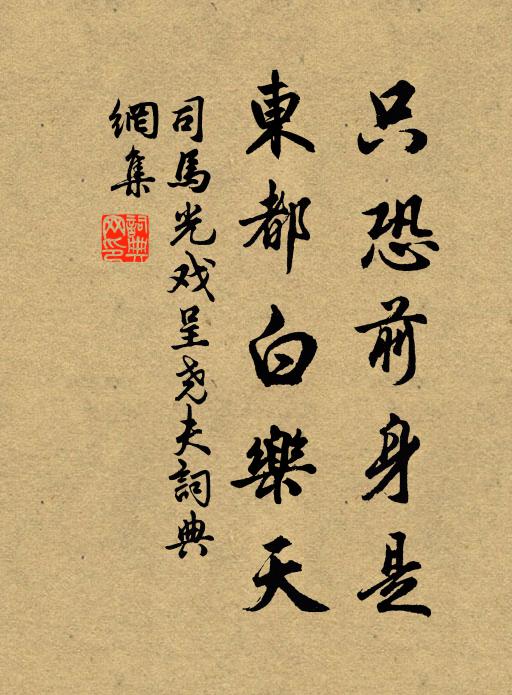 只恐前身是
東都白樂天
司馬光戏呈尧夫詞典
網集
詞典
网印